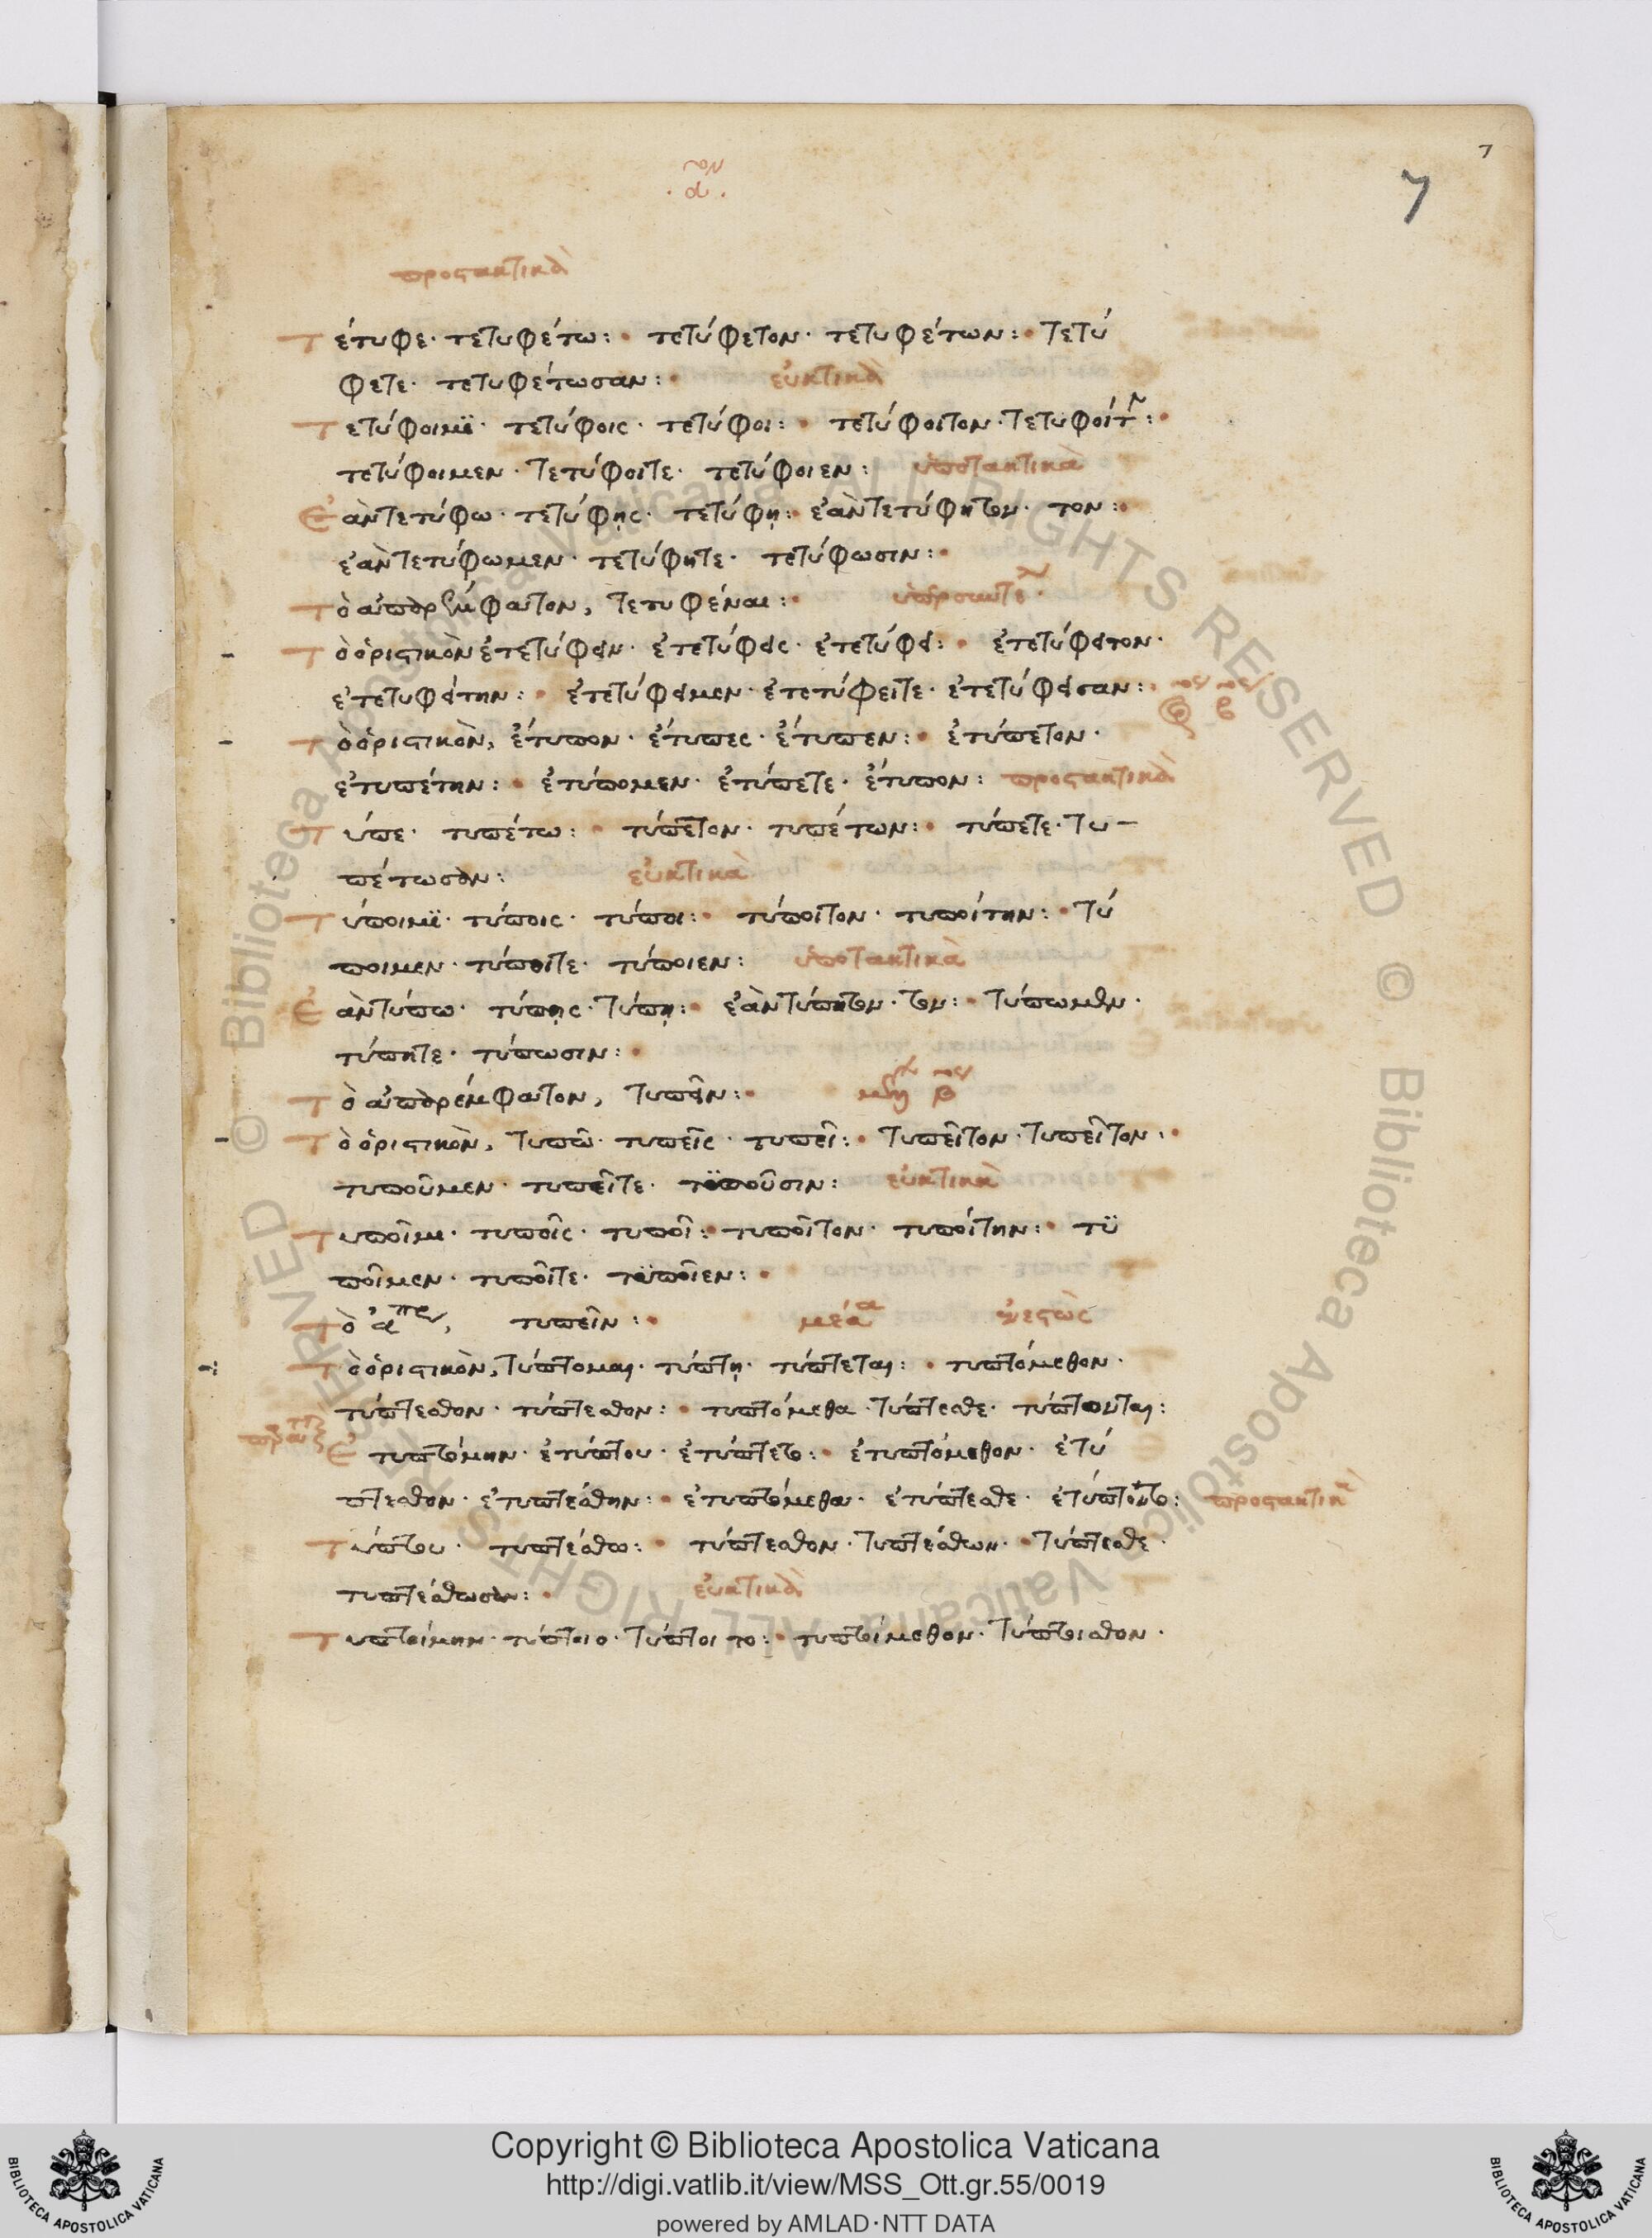 7
7
προστακτικὰ
Τέτυφε· τετυφέτω: τετύφετον· τετυφέτων: τετύ
φετε· τετυφέτωσαν: εὐκτικὰ
Τετύφοιμϊ· τετύφοις· τετύφοι: τετύφοιτον· τετυφοίτην:
τετύφοιμεν· τετύφοιτε· τετύφοιεν: ὑποτακτικὰ
Ἐὰν τετύφω· τετύφῃς· τετύφῃ: ἐὰν τετύφητον· τον:
ἐὰν τετύφωμεν· τετύφητε· τετύφωσιν:
Τὸ ἀπαρέμφατον, τετυφέναι:
Τὸ ὁριστικὸν ἐτετύφειν· ἐτετύφεις· ἐτετύφει: ἐτετύφειτον·
ἐτετυφείτην: ἐτετύφειμεν· ἐτετύφειτε· ἐτετύφεισαν:
Τὸ ὁριστικὸν, ἔτυπον· ἔτυπες· ἔτυπεν: ἐτύπετον·
ἐτυπέτην: ἐτύπομεν· ἐτύπετε· ἔτυπον: προστακτικὰ
Τύπε· τυπέτω: τύπετον· τυπέτων: τύπετε· τυ-
πέτωσαν: εὐκτικὰ
Τύποιμϊ· τύποις· τύποι: τύποιτον· τυποίτην: τύ
ποιμεν· τύποιτε· τύποιεν: ὑποτακτικὰ
Ἐὰν τύπω· τύπῃς· τύπῃ: ἐὰν τύπητον· τον: τύπωμεν·
τύπητε· τύπωσιν:
Τὸ ἀπαρέμφατον, τυπεῖν: β
Τὸ ὁριστικὸν, τυπῶ· τυπεῖς· τυπεῖ: τυπεῖτον· τυπεῖτον:
τυποῦμεν· τυπεῖτε· τϋποῦσιν: εὐκτικὰ
Τυποῖμι· τυποῖς· τυποῖ: τυποῖτον· τυποίτην: τϋ
ποῖμεν· τυποῖτε· τϋποῖεν:
Τὸ ἀπαρ, τυπεῖν: ἐνεστὼς
Τὸ ὁριστικὸν, τύπτομαι· τύπτῃ· τύπτεται: τυπτόμεθον·
τύπτεσθον· τύπτεσθον: τυπτόμεθα· τύπτεσθε· τύπτονται:
Ἐτυπτόμην· ἐτύπτου· ἐτύπτετο: ἐτυπτόμεθον· ἐτύ
πτεσθον· ἐτυπτέσθην: ἐτυπτόμεθα· ἐτύπτεσθε· ἐτύπτοντο: προστακτικ
Τύπτου· τυπτέσθω: τύπτεσθον· τυπτέσθων· τύπτεσθε·
τυπτέσθωσαν: εὐκτικὰ
Τυπτοίμην· τύπτοιο· τύπτοιτο: τυπτοίμεθον· τύπτοισθον·
Copyright © Biblioteca Apostolica Vaticana
http://digi.vatlib.it/view/MSS_Ott.gr.55/0019
powered by AMLAD·NTT DATA